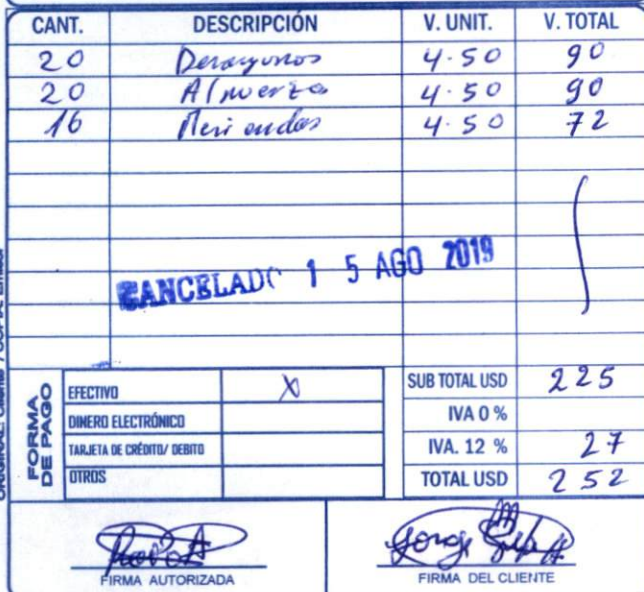 CANT. DESCRIPCIÓN V. UNIT. V. TOTAL
20 Desayunos 4.50 90
20 Almuerzo 4.50 90
16 Meriendas 4.50 72
CANCELADO 15 AGO 2019
ORIGINAL: Cliente / COPIA: Emisor
FORMA DE PAGO
EFECTIVO X
DINERO ELECTRÓNICO
TARJETA DE CRÉDITO/ DEBITO
OTROS
SUB TOTAL USD 225
IVA 0 %
IVA. 12 % 27
TOTAL USD 252
FIRMA AUTORIZADA
FIRMA DEL CLIENTE